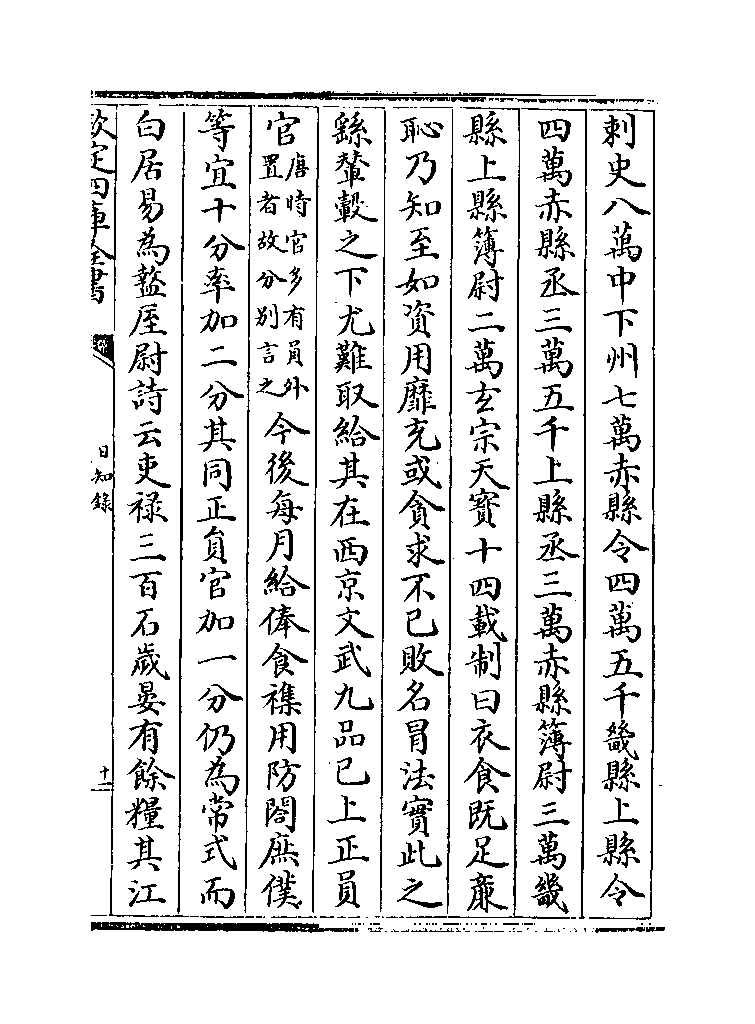 刺史八萬中下州七萬赤縣令四萬五千畿縣上縣令
四萬赤縣丞三萬五千上縣丞三萬赤縣簿尉三萬畿
縣上縣簿尉二萬玄宗天寶十四載制曰衣食既足廉
恥乃知至如資用靡充或貪求不已敗名冒法實此之
繇輦轂之下尤難取給其在西京文武九品已上正員
官唐時官多有員外置者故分别言之今後每月給俸食襍用防閤庶僕
等宜十分率加二分其同正員官加一分仍為常式而
白居易為盩厔尉詩云吏禄三百石歲晏有餘糧其江
欽定四庫全書
日知錄
十一